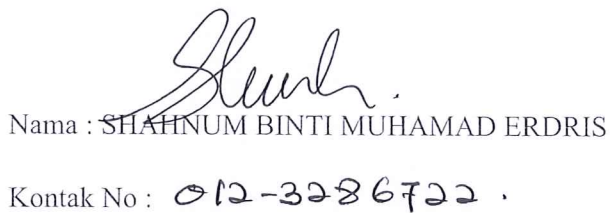 Nama : SHAHNUM BINTI MUHAMAD ERDRIS
Kontak No : 012-3286722 .